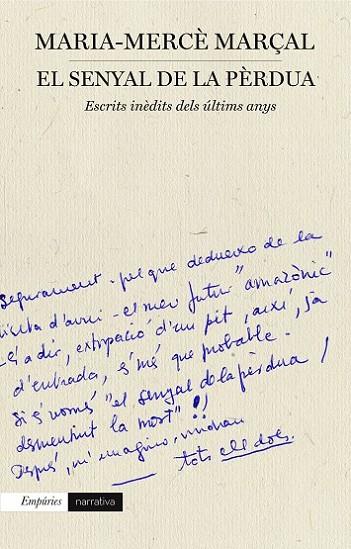 MARIA-MERCÈ MARÇAL
EL SENYAL DE LA PÈRDUA
Escrits inèdits dels últims anys
Segurament - pel que dedueixo de la
visita d'avui - el meu futur "amazònic"
és a dir, extirpació d'un pit, així, ja
d'entrada, és més que probable.
Si és només "el senyal de la pèrdua /
desmentint la mort"!!
Després, m'imagino, vindran
— tots els dols.
Empúries narrativa